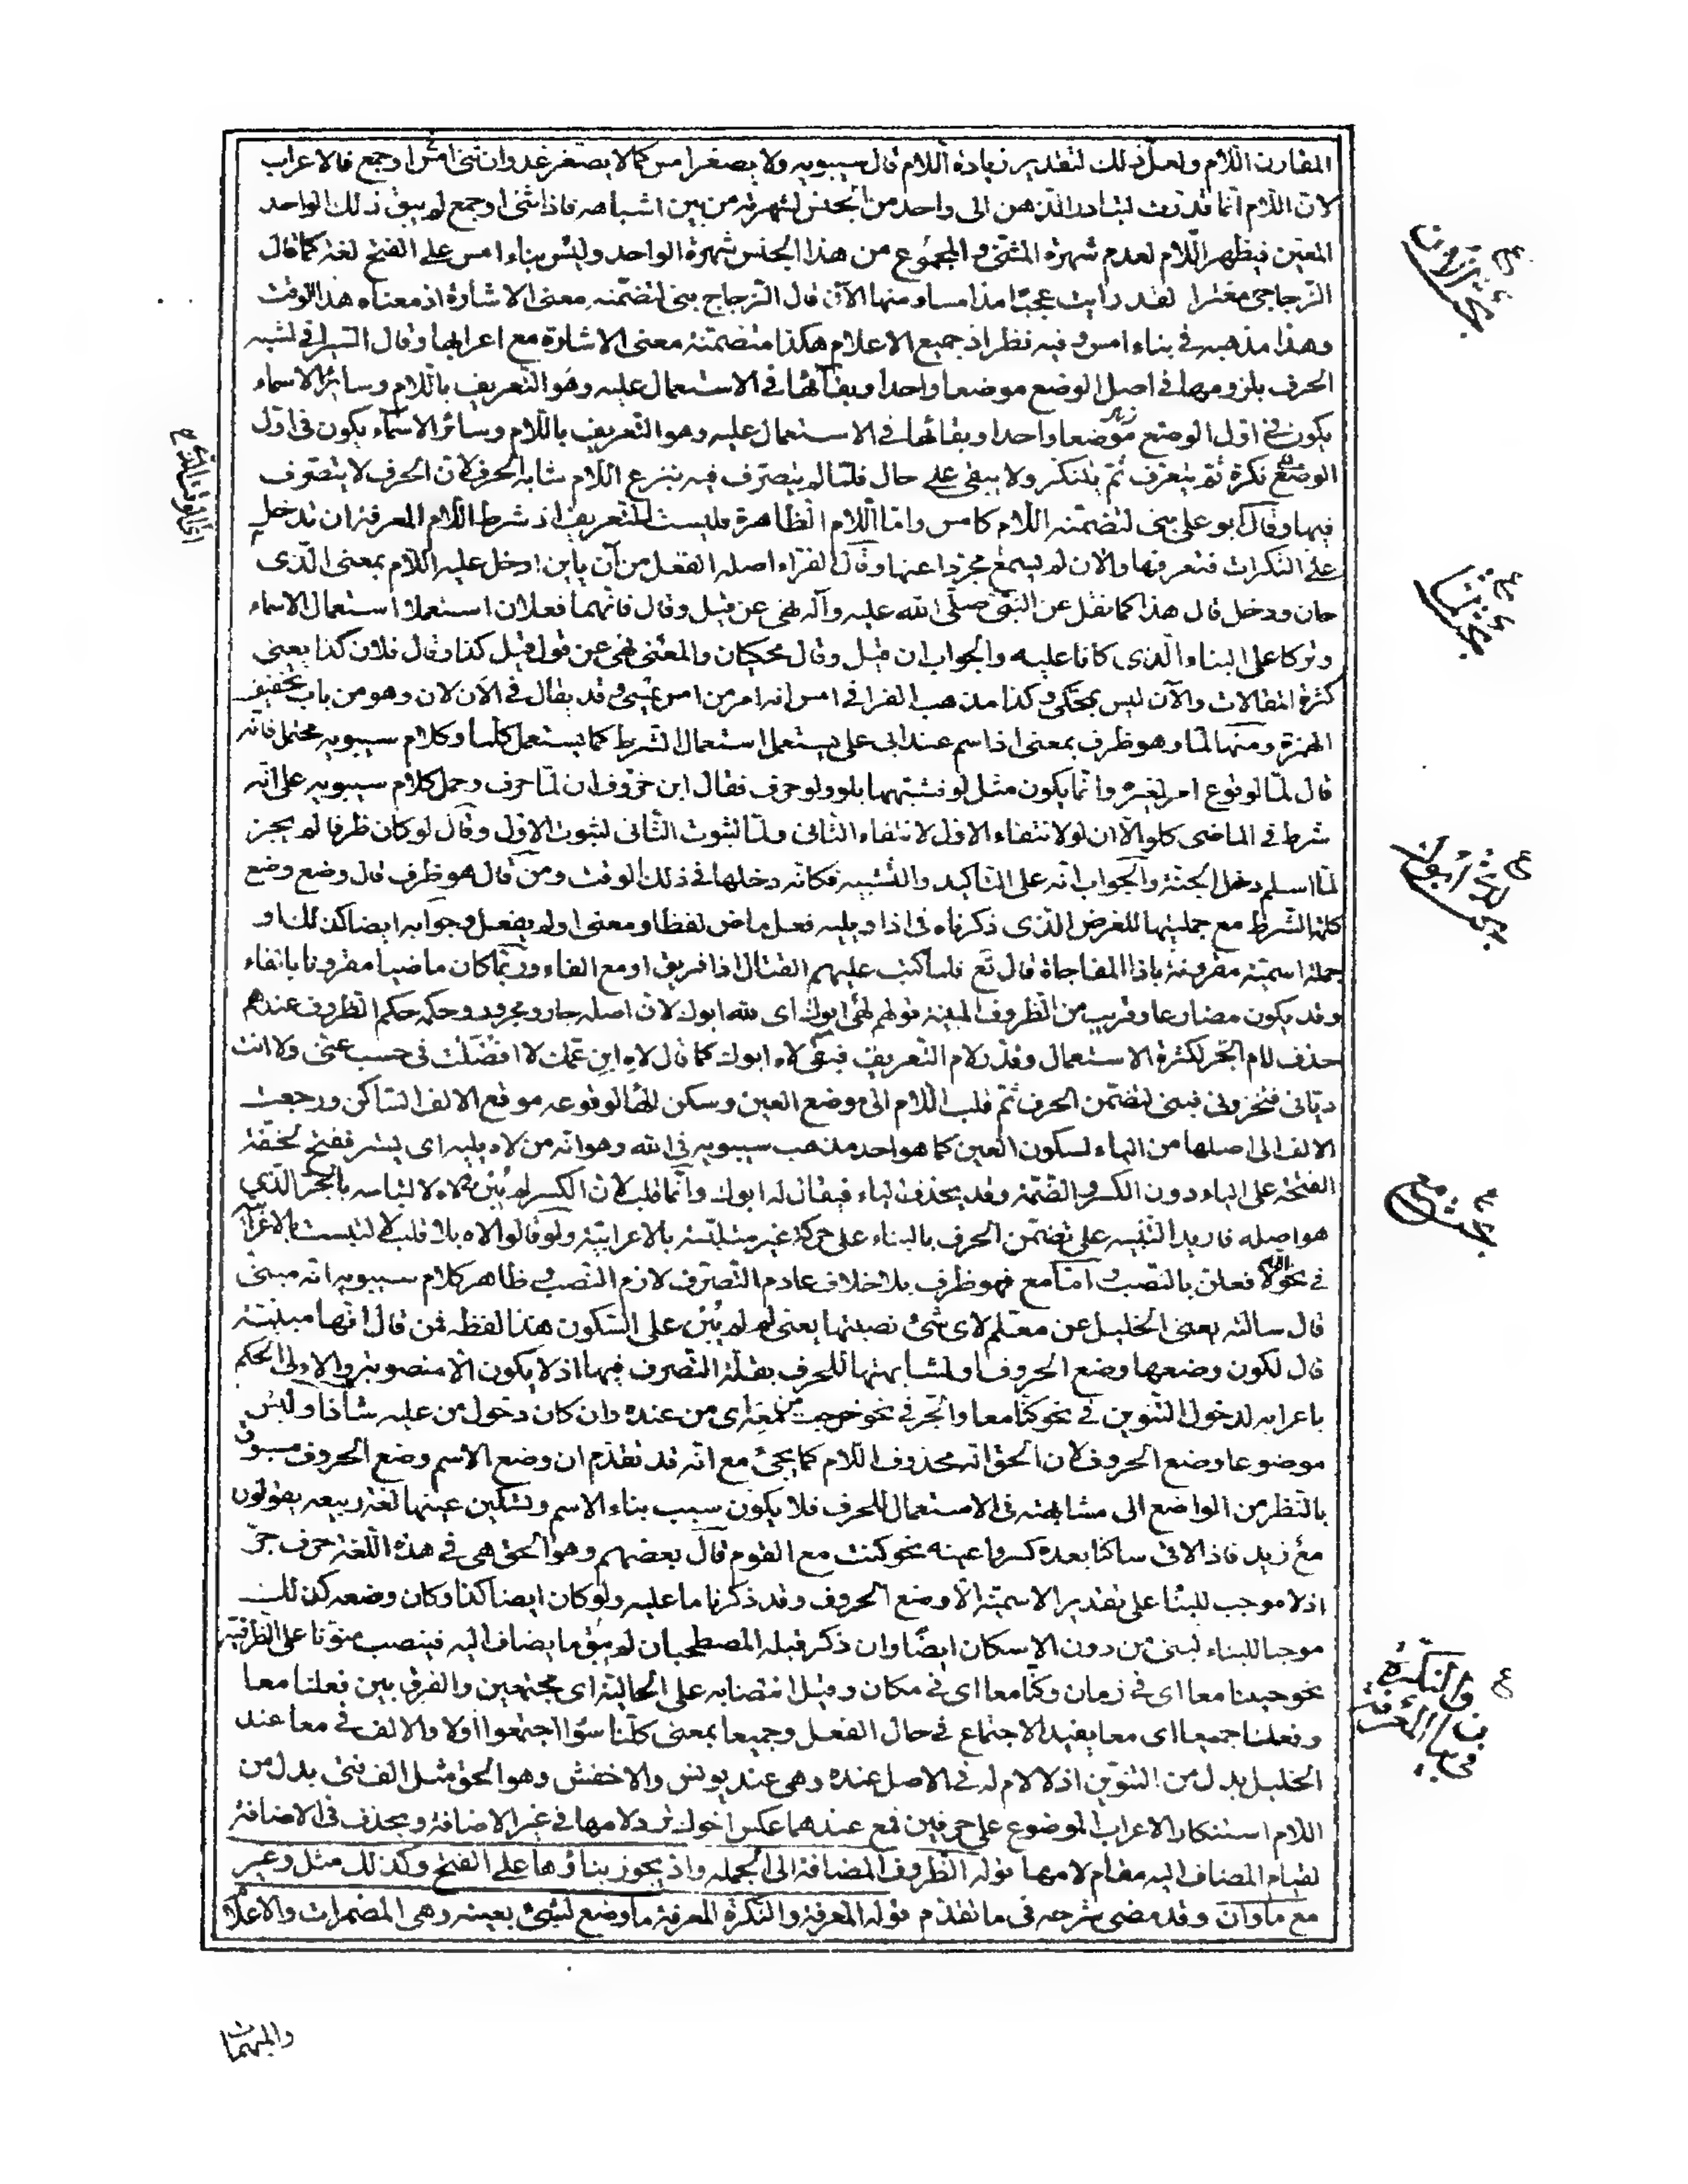 المقارن اللام ولعل ذلك لتقدير زيادة اللام قال سيبويه ولا يصغر امس كما لا يصغر غد وان ثنى امس او جمع فالاعراب
لان اللام انما قدرت لتبادر الذهن الى واحد من الجنس لشهرته من بين اشباهه فاذا ثنى او جمع لم يبق ذلك الواحد
المعين فيظهر اللام لعدم شهرة المثنى والمجموع من هذا الجنس شهرة الواحد وليس بناء امس على الفتح لغة كما قال
الزجاجى مغترا لقد رايت عجبا مذ امسا ومنها الآن قال الزجاج بنى لتضمنه معنى الاشارة اذ معناه هذا الوقت
وهذا مذهبه فى بناء امس وفيه نظر اذ جميع الاعلام هكذا متضمنة معنى الاشارة مع اعرابها وقال السيرافى لشبه
الحرف بلزومها فى اصل الوضع موضعا واحدا وبقائها فى الاستعمال عليه وهو التعريف باللام وسائر الاسماء
يكون فى اول الوضع موضعا واحدا وبقائها فى الاستعمال عليه وهو التعريف باللام وسائر الاسماء يكون فى اول
الوضع نكرة ثم يتعرف ثم يتنكر ولا يبقى على حال فلما لم يتصرف فيه بنزع اللام شابه الحرف لان الحرف لا يتصرف
فيها وقال ابو على بنى لتضمنه اللام كامس واما اللام الظاهرة فليست للتعريف اذ شرط اللام المعرفة ان تدخل
على النكرات فتعرفها والان لم يسمع مجردا عنها وقال الفراء اصله الفعل من آن يأين ادخل عليه اللام بمعنى الذى
حان ودخل قال هذا كما نقل عن النبى صلى الله عليه وآله نهى عن قيل وقال فانهما فعلان استعملا استعمال الاسماء
وتركا على البناء الذى كانا عليه والجواب ان قيل وقال محكيان والمعنى نهى عن قول قيل كذا وقال فلان كذا يعنى
كثرة المقالات والآن ليس بمحكى وكذا مذهب الفرا فى امس انه امر من امس يمسى وقد يقال فى الآن لان وهو من باب تخفيف
الهمزة ومنها لما وهو ظرف بمعنى اذ اسم عند ابى على يستعمل استعمال الشرط كما يستعمل كلما وكلام سيبويه محتمل فانه
قال لما لوقوع امر لغيره وانما يكون مثل لو فشبهها بلو ولو حرف فقال ابن خروف ان لما حرف وحمل كلام سيبويه على انه
شرط فى الماضى كلو الا ان لو لانتفاء الاول لانتفاء الثانى ولما لثبوت الثانى لثبوت الاول وقال لو كان ظرفا لم يجز
لما اسلم دخل الجنة والجواب انه على التاكيد والتشبيه فكانه دخلها فى ذلك الوقت ومن قال هو ظرف قال وضع وضع
كلمة الشرط مع جملتيها للغرض الذى ذكرناه فى اذا ويليه فعل ماض لفظا ومعنى او لم يفعل وجوابه ايضا كذلك او
جملة اسمية مقرونة باذا المفاجاة قال تع فلما كتب عليهم القتال اذا فريق او مع الفاء وربما كان ماضيا مقرونا بالفاء
وقد يكون مضارعا وقريب من الظروف المبنية قولهم لهى ابوك اى لله ابوك لان اصله جار ومجرور وحكمه حكم الظروف عندهم
حذف لام الجر لكثرة الاستعمال وقدر لام التعريف فبقى لاه ابوك كما قال لاه ابن عمك لا افضلت فى حسب عنى ولا انت
ديانى فتخزونى فبنى لتضمن الحرف ثم قلب اللام الى موضع العين وسكن الهاء لوقوعه موقع الالف الساكن ورجعت
الالف الى اصلها من الياء لسكون العين كما هو احد مذهب سيبويه فى الله وهو انه من لاه يليه اى يستر ففتح لخفة
الفتحة على الياء دون الكسر والضمة وقد يحذف الياء فيقال له ابوك وانما قلب لان الكسر لم يبن لاه لالتباسه بالجر الذى
هو اصله فاريد التنبيه على تضمن الحرف بالبناء على حركة غير متلبسة بالاعرابية ولو قالوا لاه بلا قلب لالتبست بالاعراب
فى نحو الله لافعلن بالنصب واما مع فهو ظرف بلا خلاف عادم التصرف لازم النصب وظاهر كلام سيبويه انه مبنى
قال سالته يعنى الخليل عن معكم لاى شئ نصبتها يعنى لم لم يبن على السكون هذا لفظه فمن قال انها مبنية
قال لكون وضعها وضع الحروف او لمشابهتها للحرف بقلة التصرف فيها اذ لا يكون الا منصوبة والاولى الحكم
باعرابه لدخول التنوين فى نحو كنا معا والجر فى نحو خرجت من معه اى من عنده وان كان دخول من عليه شاذا وليس
موضوعا وضع الحروف لان الحق انه محذوف اللام كما يجئ مع انه قد تقدم ان وضع الاسم وضع الحروف مسبوق
بالنظر من الواضع الى مشابهته فى الاستعمال للحرف فلا يكون سبب بناء الاسم وتسكين عينها لغة ربيعه يقولون
مع زيد فاذا لاقى ساكنا بعده كسروا عينه نحو كنت مع القوم قال بعضهم وهو الحق هى فى هذه اللغة حرف جر
اذ لا موجب للبنا على تقدير الاسمية الا وضع الحروف وقد ذكرنا ما عليه ولو كان ايضا كذا وكان وضعه كذلك
موجبا للبناء لبنى من دون الاسكان ايضا وان ذكر قبله المصطحبان لم يبق ما يضاف اليه فينصب منونا على الظرفية
نحو جينا معا اى فى زمان وكنا معا اى فى مكان وقيل انتصابه على الحالية اى مجتمعين والفرق بين فعلنا معا
وفعلنا جميعا اى معا يفيد الاجتماع فى حال الفعل وجميعا بمعنى كلنا سواء اجتمعوا اولا والالف فى معا عند
الخليل بدل من التنوين اذ لا لام له فى الاصل عنده وهى عند يونس والاخفش وهو الحق مثل الف فتى بدل من
اللام استنكار الاعراب الموضوع على حرفين فمع عندهما عكس اخوك ترد لامها فى غير الاضافة ويحذف فى الاضافة
لقيام المضاف اليه مقام لامها قوله الظروف المضافة الى الجمله واذ يجوز بناؤها على الفتح وكذلك مثل وغير
مع ما وان وقد مضى شرحه فى ما تقدم قوله المعرفة والنكرة المعرفة ما وضع لشئ بعينه وهى المضمرات والاعلام
والمبهمات
بحث الآن
بحث لما
بحث لله ابوك
بحث مع
فى بيان المعرفة والنكرة